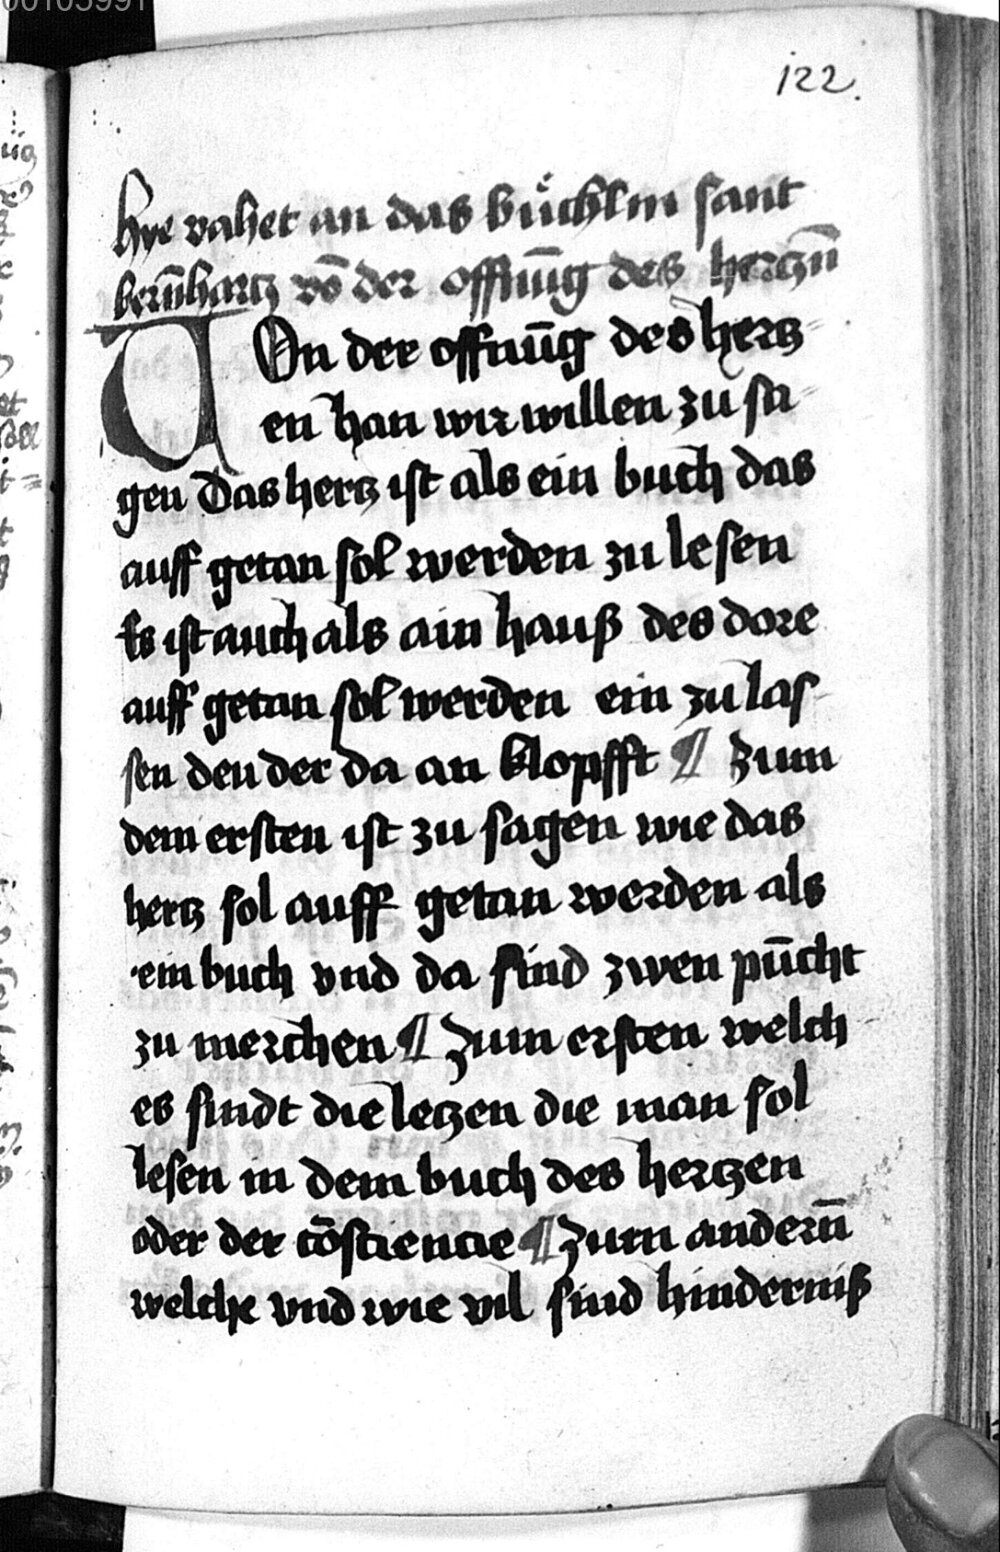 122.
hye vahet an das bůchlin sant
bern̄hartz vō der offnūg des hertzn̄
Von der offnūg des hertz-
en han wir willen zu sa-
gen Das hertz ist als ein buch das
auff getan sol werden zu lesen
Es ist auch als ain hauß des dore
auff getan sol werden ein zu las-
sen den der da an klopfft ¶ Zum
dem ersten ist zu sagen wie das
hertz sol auff getan werden als
ein buch vnd da sind zwen pūcht
zu merchen ¶ Zum ersten welch
es sindt die letzen die man sol
lesen in dem buch des hertzen
oder der cōsciencie ¶ Zum andern̄
welche vnd wie vil sind hinderniß